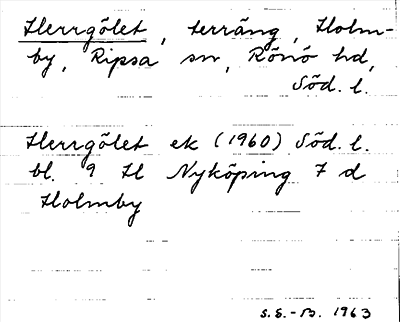 Herrgölet, terräng, Holm-
by, Ripsa sn, Rönö hd,
Söd. l.
Herrgölet ek (1960) Söd. l.
bl. 9 H Nyköping 7 d
Holmby
S.S.-B. 1963